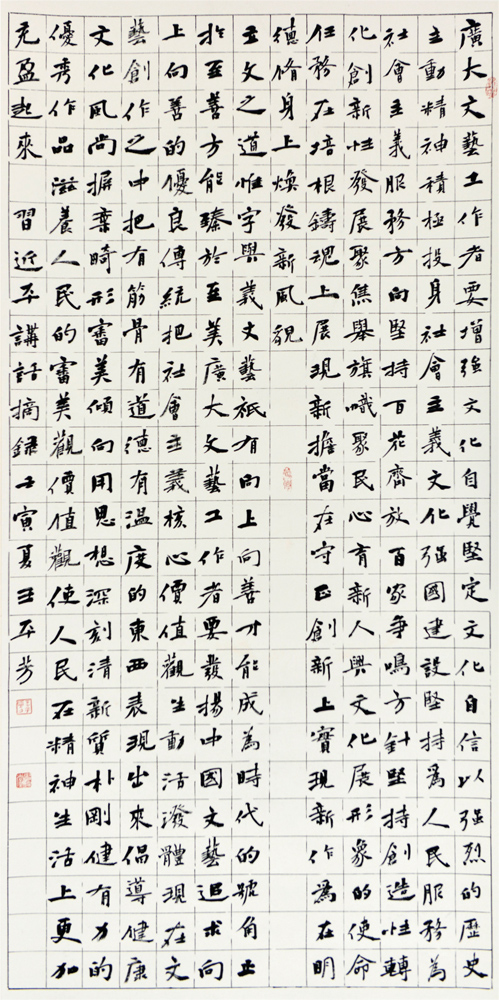 廣大文藝工作者要增強文化自覺堅定文化自信以強烈的歷史
主動精神積極投身社會主義文化強國建設堅持為人民服務為
社會主義服務方向堅持百花齊放百家爭鳴方針堅持創造性轉
化創新性發展聚焦舉旗幟聚民心育新人興文化展形象的使命
任務在培根鑄魂上展現新擔當在守正創新上實現新作為在明
德脩身上煥發新風貌
立文之道惟字與義文藝祇有向上向善才能成為時代的號角止
於至善方能臻於至美廣大文藝工作者要發揚中國文藝追求向
上向善的優良傳統把社會主義核心價值觀生動活潑體現在文
藝創作之中把有筋骨有道德有溫度的東西表現出來倡導健康
文化風尚摒棄畸形審美傾向用思想深刻清新質朴剛健有力的
優秀作品滋養人民的審美觀價值觀使人民在精神生活上更加
充盈起來 習近平講話摘錄壬寅夏王平芳